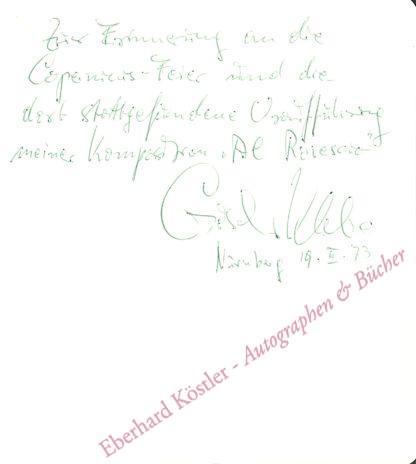 Zur Erinnerung an die
Copernicus-Feier und die
dort stattgefundene Uraufführung
meiner Komposition „Al Rovescio"
Giselher Klebe
Nürnberg 19. II. 73
Eberhard Köstler - Autographen & Bücher